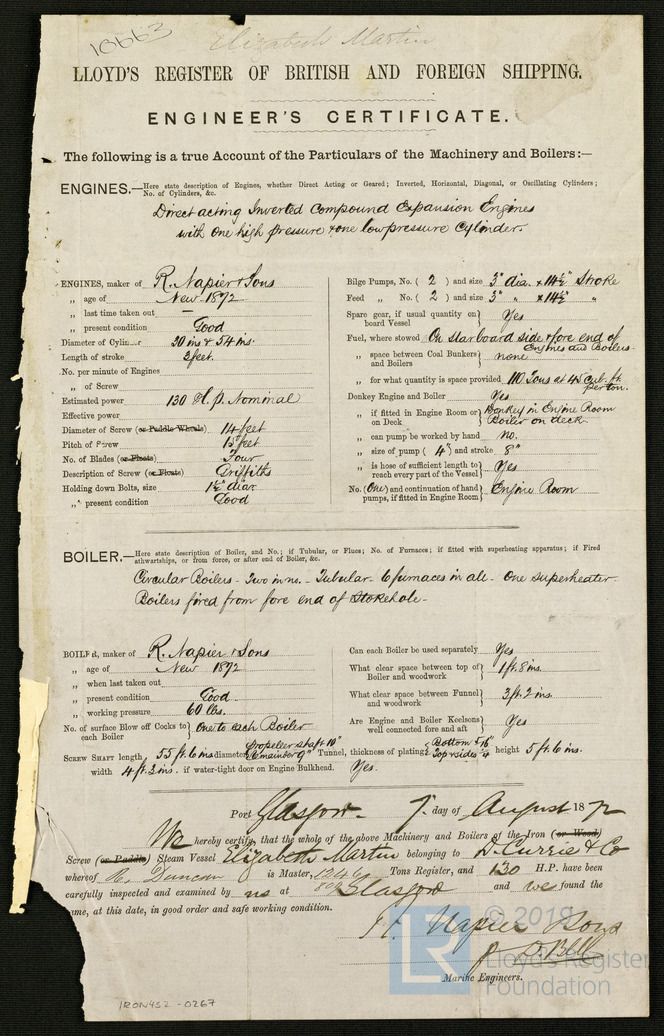 18663
Elizabeth Martin
LLOYD'S REGISTER OF BRITISH AND FOREIGN SHIPPING.
ENGINEER'S CERTIFICATE.
The following is a true Account of the Particulars of the Machinery and Boilers:—
ENGINES.—Here state description of Engines, whether Direct Acting or Geared; Inverted, Horizontal, Diagonal, or Oscillating Cylinders;
No. of Cylinders, &c.
Direct acting Inverted Compound Expansion Engines
with one high pressure & one low pressure Cylinder.
ENGINES, maker of R. Napier & Sons
„ age of New 1872
„ last time taken out —
„ present condition Good
Diameter of Cylinder 30 ins & 54 ins.
Length of stroke 3 feet.
No. per minute of Engines
„ of Screw
Estimated power 130 H.p. Nominal
Effective power
Diameter of Screw (or Paddle Wheels) 14 feet
Pitch of Screw 15 feet
No. of Blades (or Floats) Four
Description of Screw (or Floats) Griffiths
Holding down Bolts, size 1½" diar.
„ present condition Good
Bilge Pumps, No. ( 2 ) and size 3" dia. x 14½" Stroke
Feed „ No. ( 2 ) and size 3" „ x 14½" „
Spare gear, if usual quantity on board Vessel } Yes
Fuel, where stowed On starboard side & fore end of Engines and Boilers
„ space between Coal Bunkers and Boilers } none
„ for what quantity is space provided 110 Tons at 45 cub. ft. per ton.
Donkey Engine and Boiler Yes
„ if fitted in Engine Room or on Deck } Donkey in Engine Room Boiler on deck
„ can pump be worked by hand no.
„ size of pump ( 4") and stroke 8"
„ is hose of sufficient length to reach every part of the Vessel } Yes
No. (One) and continuation of hand pumps, if fitted in Engine Room } Engine Room
BOILER.—Here state description of Boiler, and No.; if Tubular, or Flues; No. of Furnaces; if fitted with superheating apparatus; if Fired
athwartships, or from force, or after end of Boiler, &c.
Circular Boilers - Two in no. - Tubular - 6 furnaces in all - One superheater
Boilers fired from fore end of Stokehole -
BOILER, maker of R. Napier & Sons
„ age of New 1872
„ when last taken out
„ present condition Good
„ working pressure 60 lbs.
No. of surface Blow off Cocks to each Boiler } One to each Boiler
Can each Boiler be used separately Yes
What clear space between top of Boiler and woodwork } 1 ft. 8 ins.
What clear space between Funnel and woodwork } 3 ft. 2 ins.
Are Engine and Boiler Keelsons well connected fore and aft } Yes
SCREW SHAFT length 55 ft. 6 ins diameter { Propeller shaft 10" Remainder 9" Tunnel, thickness of plating { Bottom 5/16" Top & sides 1/4 height 5 ft. 6 ins.
width 4 ft. 3 ins. if water-tight door on Engine Bulkhead. Yes.
Port Glasgow - 7. day of August 1872
We hereby certify, that the whole of the above Machinery and Boilers of the Iron (or Wood)
Screw (or Paddle) Steam Vessel Elizabeth Martin belonging to D. Currie & Co
whereof Duncan is Master, 1246 Tons Register, and 130 H.P. have been
carefully inspected and examined by us at Glasgow and we found the
same, at this date, in good order and safe working condition.
Napier & Sons
D. Bell
Marine Engineers.
IRON452 - 0267
© 2018
Lloyd's Register
Foundation